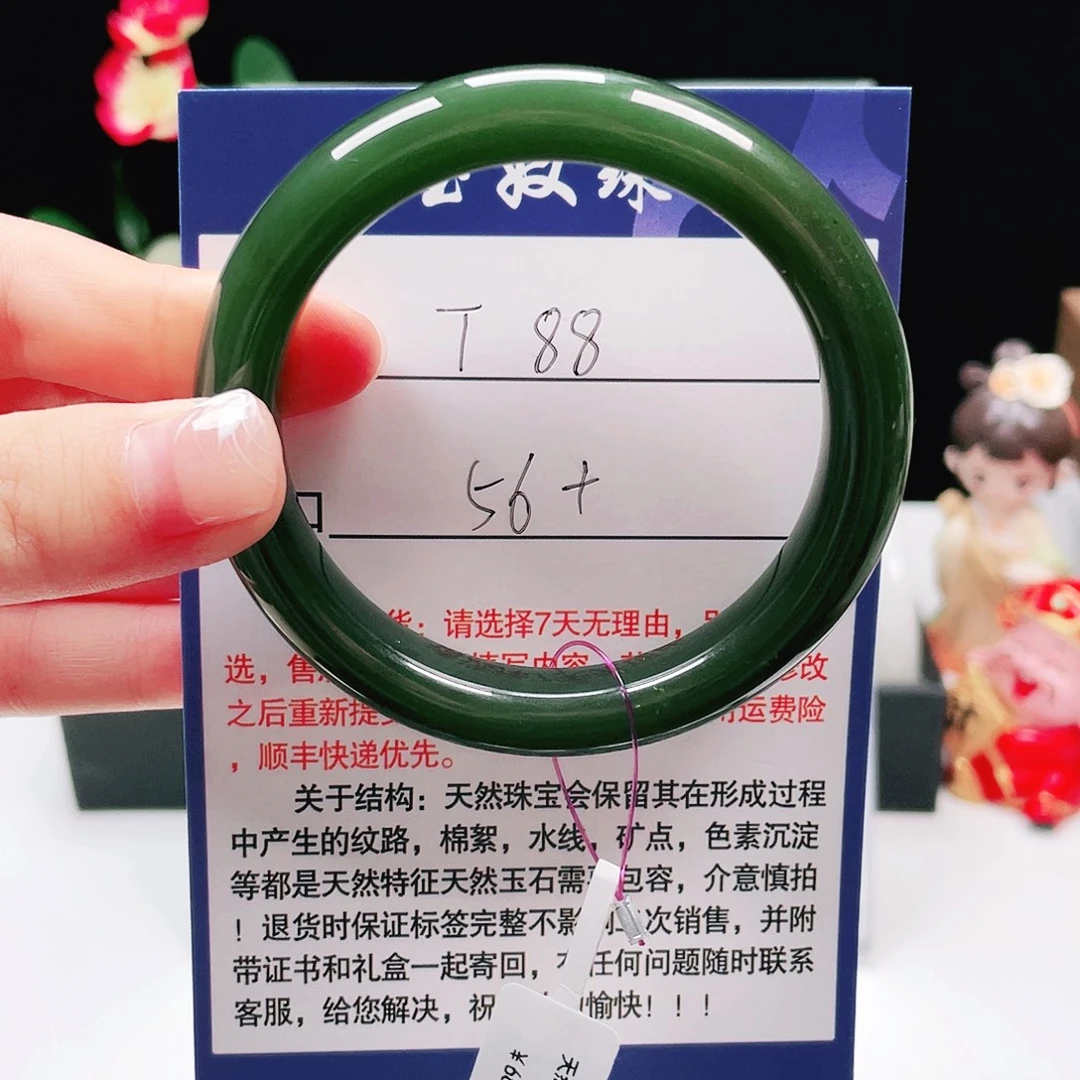 T 88
口
56+
货：请选择7天无理由，
选，售 填写内容 修改
之后重新提交 运费险
，顺丰快递优先。
关于结构：天然珠宝会保留其在形成过程
中产生的纹路，棉絮，水线，矿点，色素沉淀
等都是天然特征天然玉石需 包容，介意慎拍
！退货时保证标签完整不影 二次销售，并附
带证书和礼盒一起寄回， 任何问题随时联系
客服，给您解决，祝 愉快！！！